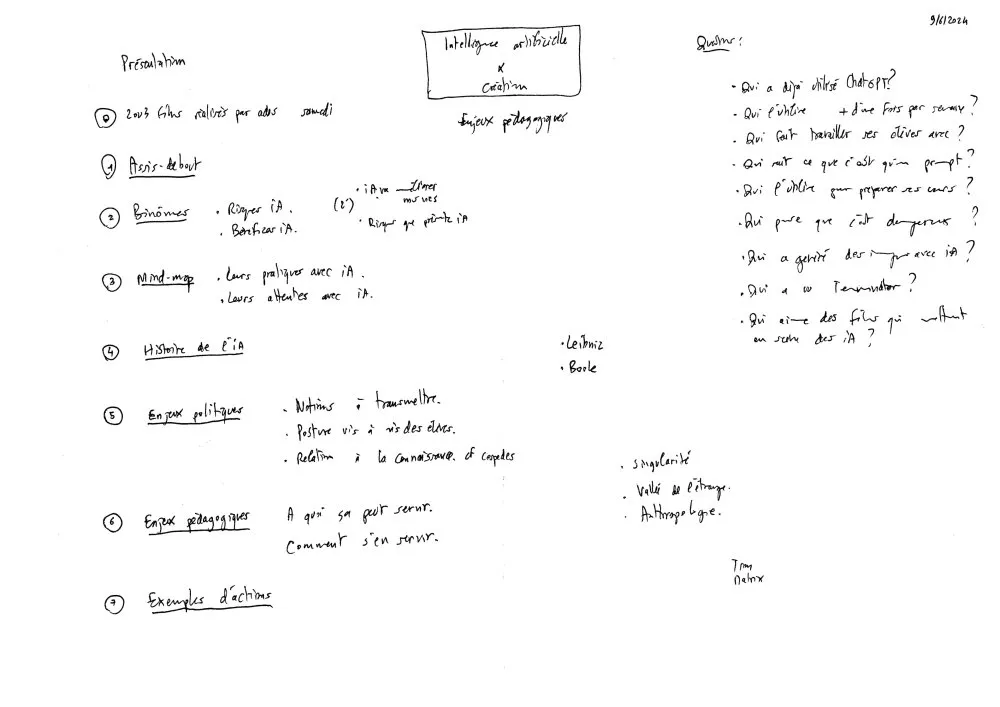 9/6/2024
Présentation
Intelligence artificielle
&
Création
Enjeux pédagogiques
0 2 ou 3 films réalisés par ados samedi
1 Assis-debout
2 Binômes
• Risques iA.
• Bénéfices iA.
(2')
• iA va
mes rves
• Risque que iA
3 Mind-map
• Leurs pratiques avec iA.
• Leurs attentes avec iA.
4 Histoire de l'iA
• Leibniz
• Boole
5 Enjeux politiques
• Notions à transmettre.
• Posture vis à vis des élèves.
• Relation à la connaissance. cf Cespedes
• Singularité
• Vallée de l'étrange.
• Anthropologie.
6 Enjeux pédagogiques
A quoi ça peut servir.
Comment s'en servir.
Tron
Matrix
7 Exemples d'actions
Questions :
• Qui a déjà utilisé ChatGPT?
• Qui l'utilise + d'une fois par semaine ?
• Qui fait travailler ses élèves avec ?
• Qui sait ce que c'est qu'un prompt ?
• Qui l'utilise pour préparer ses cours ?
• Qui pense que c'est dangereux ?
• Qui a généré des images avec iA ?
• Qui a vu Terminator ?
• Qui aime des films qui mettent
en scène des iA ?